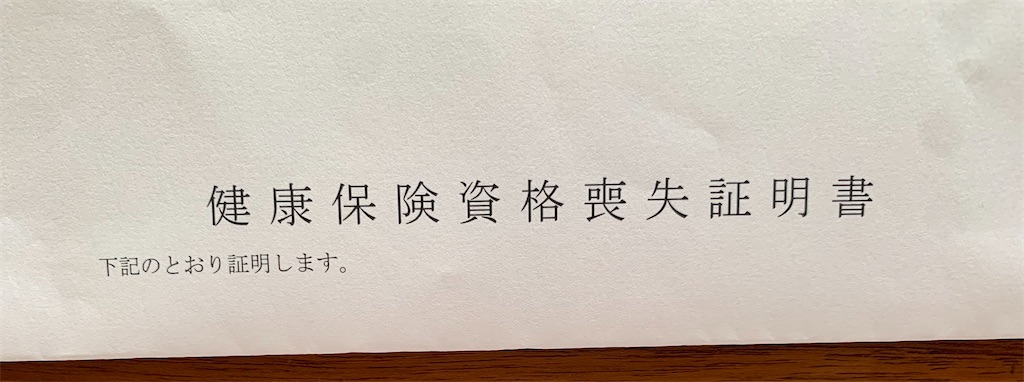 健康保険資格喪失証明書
下記のとおり証明します。